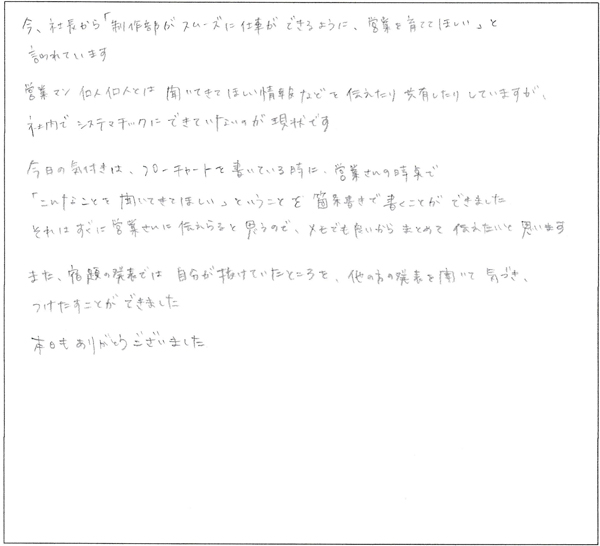 今、社長から「制作部がスムーズに仕事ができるように、営業を育ててほしい」と
言われています
営業マン個人個人とは 聞いてきてほしい情報などを伝えたり共有したりしていますが、
社内でシステマチックにできていないのが現状です
今日の気付きは、フローチャートを書いている時に、営業さんの時点で
「こんなことを聞いてきてほしい」ということを箇条書きで書くことができました
それはすぐに営業さんに伝えらると思うので、メモでも良いからまとめて伝えたいと思います
また、宿題の発表では 自分が抜けていたところを、他の方の発表を聞いて気づき、
つけたすことができました
本日もありがとうございました